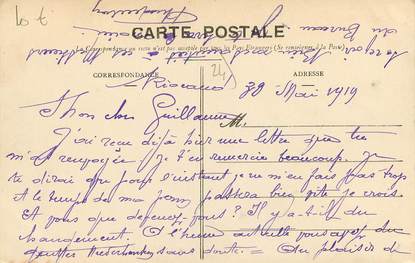 CARTE POSTALE
La Correspondance au recto n'est pas acceptée par tous les Pays Etrangers (Se renseigner à la Poste)
CORRESPONDANCE
ADRESSE
24
28 Mai 1919
Mon cher Guillaume
M.
J'ai reçu déjà hier une lettre que tu
m'as renvoyée je t'en remercie beaucoup. Je
te dirai que pour l'instant je ne m'en fais pas trop
et le temps de ma passera bien vite je crois.
Et vous que devenez-vous? Il y a-t-il du
changement. A l'heure actuelle vous avez des
gouttes sans doute. Au plaisir de